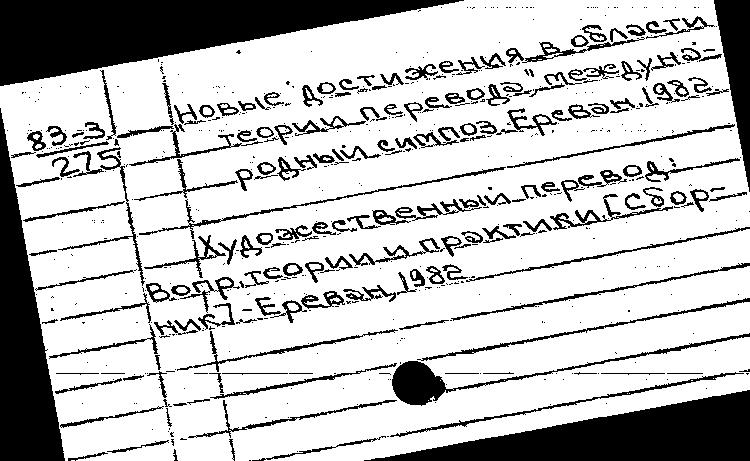 83-3
275
"Новые достижения в области
теории перевода", междуна-
родный симпоз. Ереван. 1982
Художественный перевод:
Вопр. теории и практики. [Сбор-
ник]. - Ереван, 1982